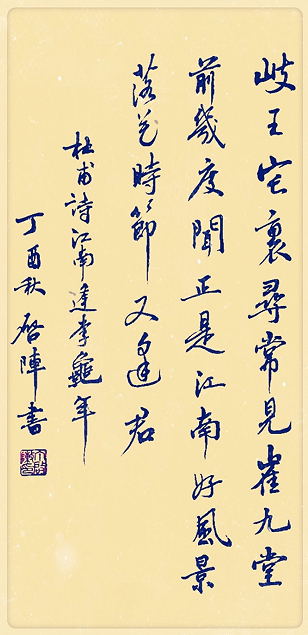 岐王宅裏尋常見崔九堂
前幾度聞正是江南好風景
落花時節又逢君
杜甫詩江南逢李龜年
丁酉秋啓陣書